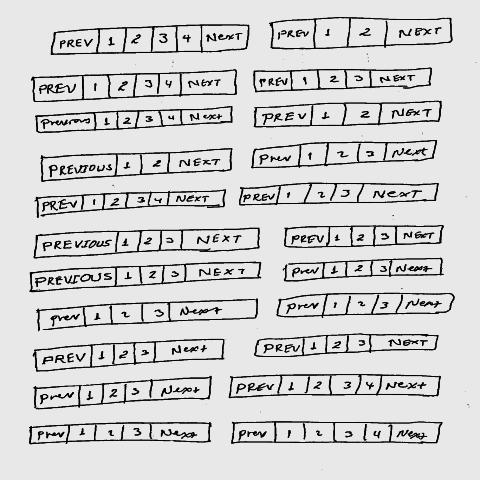 PREV 1 2 3 4 NEXT PREV 1 2 NEXT
PREV 1 2 3 4 NEXT PREV 1 2 3 NEXT
Previous 1 2 3 4 Next PREV 1 2 NEXT
PREVIOUS 1 2 NEXT Prev 1 2 3 Next
PREV 1 2 3 4 NEXT PREV 1 2 3 NEXT
PREVIOUS 1 2 3 NEXT PREV 1 2 3 NEXT
PREVIOUS 1 2 3 NEXT Prev 1 2 3 Next
Prev 1 2 3 Next Prev 1 2 3 Next
PREV 1 2 3 Next PREV 1 2 3 NEXT
Prev 1 2 3 Next PREV 1 2 3 4 Next
Prev 1 2 3 Next Prev 1 2 3 4 Next